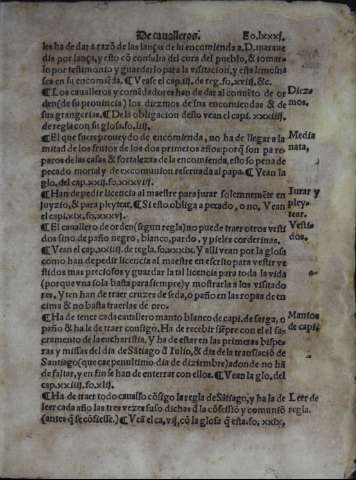 De caualleros. Fo.lxxxj.
les ha de dar a razõ de las lanças de su encomienda a .D. maraue
dis por lança, y esto cõ consulta del cura del pueblo, & tomar-
lo por testimonio y guardarlo para la visitacion, y esta limosna
sea en su encomiẽda. Vease el cap.iij. de reg.fo.xvij. &c.
¶ Los caualleros y comẽdadores han de dar al conuẽto de or
den(de su prouincia) los diezmos de sus encomiendas & de
sus grangerias. ¶ De la obligacion desto vean el capi. xxxiij
de regla con su glosa.fo.liij.
Diez-
mos.
¶ El que sucre proueydo de encomienda, no ha de llegar a la
mitad de los frutos de los dos primeros años: porq̃ son pa re
paros de las casas & fortaleza de la encomienda, esto so pena de
pecado mortal y de excomunion reseruada al papa. ¶ Vean la
glo. del cap.xxij.fo.xxxviij.
Media
nata,
¶ Han de pedir licencia al maestre para jurar solennemẽte en
juyzio, & para pleytear. ¶ Si esto obliga a pecado, o no, Vean
el capi.ix.fo.xxvj.
Iurar y
pley-
tear.
¶ El cauallero de orden(segun regla)no puede traer otros vesti
dos sino de paño negro, blanco, pardo, y pieles corderinas.
Vestidos.
¶ Vean el cap.xxiij. de regla.fo.xxxix. Y alli vean por la glosa
como han de pedir licencia al maestre en escrito para vestir ve
stidos mas preciosos y guardar la tal licencia para toda la vida
(porque vna sola basta para siempre)y mostrarla a los visitado
res, Y ten han de traer cruzes de seda, o paño en las ropas de en
cima & no basta traerlas de oro.
¶ Ha de tener cada cauallero manto blanco de capi. de sarga, o
paño & ha le de traer consigo. Ha de recebir siẽpre con el el sa-
cramento de la eucharistia, Y ha de estar en las primeras bispe-
ras y missas del dia de Sãtiago d̃ Iulio, & dia de la translaciõ de
Santiago(que es penultimo dia de diziembre)adonde no hã
de faltar, y en fin se han de enterrar con ellos. ¶ Vean la glo. del
cap.xxiiij.fo.xlij.
Mantos
de capi.
¶ Ha de traer todo cauallero cõsigo la regla de Sãtiago, y ha la de
leer cada año las tres vezes suso dichas d̃ la cõfessiõ y comuniõ
(antes q̃ se cõfiesse.) ¶ Veã el ca.vij. cõ la glosa q̃ esta.fo.xxix,
Leer de
regla.